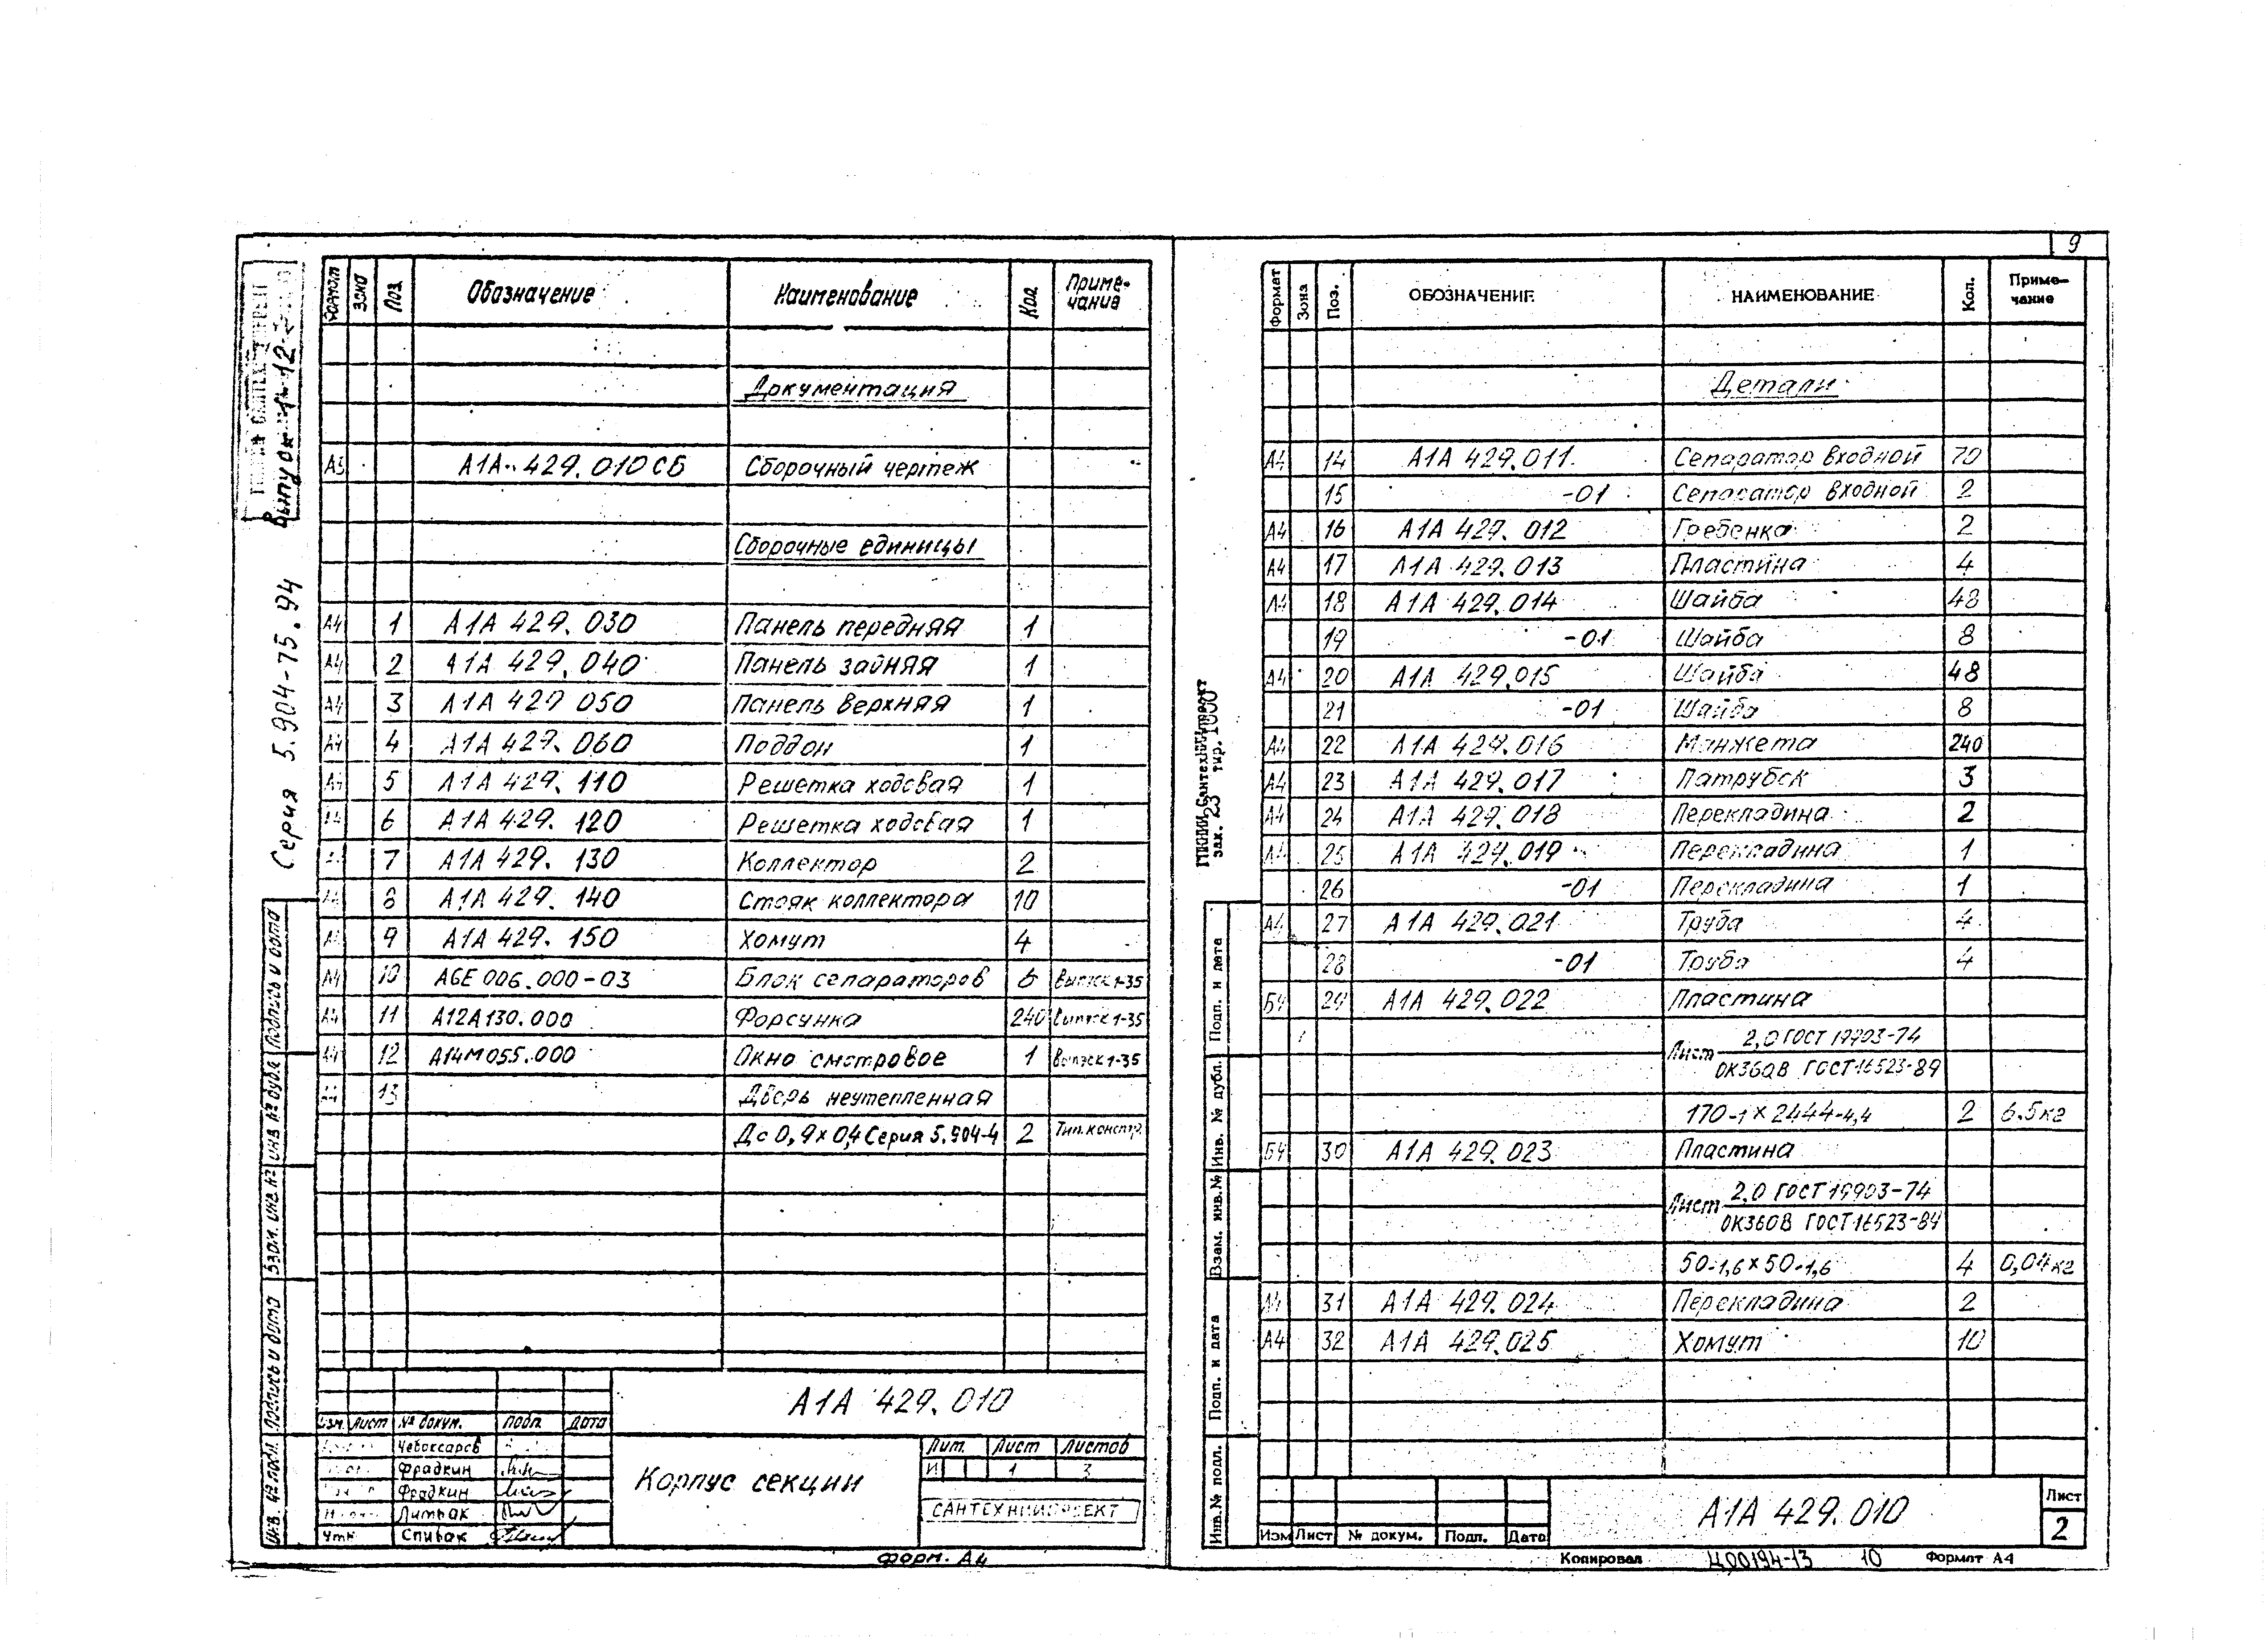 9
Серия 5.904-75.94
Формат Зона Поз. Обозначение Наименование Кол Приме-чание
Документация
А3 А1А 429.010СБ Сборочный чертеж
Сборочные единицы
А4 1 А1А 429.030 Панель передняя 1
А4 2 А1А 429.040 Панель задняя 1
А4 3 А1А 429 050 Панель верхняя 1
А4 4 А1А 429.060 Поддон 1
А4 5 А1А 429.110 Решетка ходовая 1
А4 6 А1А 429.120 Решетка ходовая 1
7 А1А 429.130 Коллектор 2
8 А1А 429.140 Стояк коллектора 10
9 А1А 429.150 Хомут 4
А4 10 А6Е 006.000-03 Блок сепараторов 6 Выпуск 1-35
А4 11 А12А130.000 Форсунка 240 Выпуск 1-35
А4 12 А14М055.000 Окно смотровое 1 Выпуск 1-35
А4 13 Дверь неутепленная
Дс 0,9×0,4 Серия 5.904-4 2 Тип. констр.
А1А 429.010
Изм. Лист № докум. Подп. Дата
Чебоксаров
Фрадкин
Фрадкин
Литвак
Утв. Спивак
Корпус секции
Лит. Лист Листов
И 1 3
САНТЕХНИИПРОЕКТ
Форм. А4
Инв. № подл. Подпись и дата Взам. инв. № Инв № дубл Подпись и дата
Формат Зона Поз. ОБОЗНАЧЕНИЕ НАИМЕНОВАНИЕ Кол. Приме-чание
Детали
А4 14 А1А 429.011 Сепаратор входной 70
15 -01 Сепаратор входной 2
А4 16 А1А 429.012 Гребенка 2
А4 17 А1А 429.013 Пластина 4
А4 18 А1А 429.014 Шайба 48
19 -01 Шайба 8
А4 20 А1А 429.015 Шайба 48
21 -01 Шайба 8
А4 22 А1А 429.016 Манжета 240
А4 23 А1А 429.017 Патрубок 3
А4 24 А1А 429.018 Перекладина 2
А4 25 А1А 429.019 Перекладина 1
26 -01 Перекладина 1
А4 27 А1А 429.021 Труба 4
28 -01 Труба 4
БЧ 29 А1А 429.022 Пластина
Лист 2,0 ГОСТ 19903-74
ОК360В ГОСТ 16523-89
170-1×2444-4,4 2 6.5кг
БЧ 30 А1А 429.023 Пластина
Лист 2,0 ГОСТ 19903-74
ОК360В ГОСТ 16523-89
50-1,6×50-1,6 4 0,04кг
А4 31 А1А 429.024 Перекладина 2
А4 32 А1А 429.025 Хомут 10
Изм Лист № докум. Подп. Дата
А1А 429.010
Лист
2
Копировал Ц00194-13 10 Формат А4
Инв. № подл. Подп. и дата Взам. инв. № Инв. № дубл. Подп. и дата
зак. 23 тир. 1000